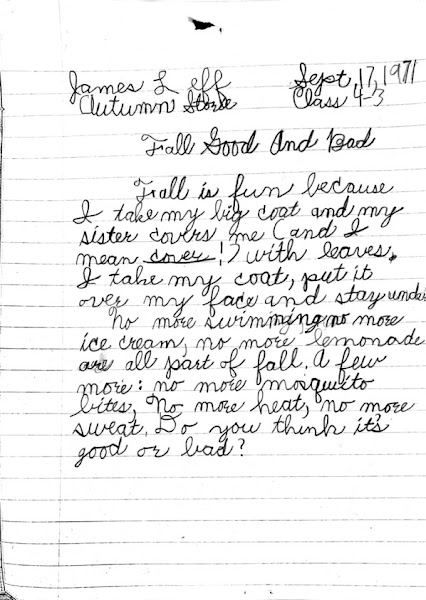 James L eff Sept. 17, 1971
Autumn Class 4-3
Fall Good And Bad
Fall is fun because
I take my big coat and my
sister covers me (and I
mean cover!) with leaves.
I take my coat, put it
over my face and stay under.
No more swimming, no more
ice cream, no more lemonade
are all part of fall. A few
more: no more mosquito
bites, No more heat, no more
sweat. Do you think it's
good or bad?